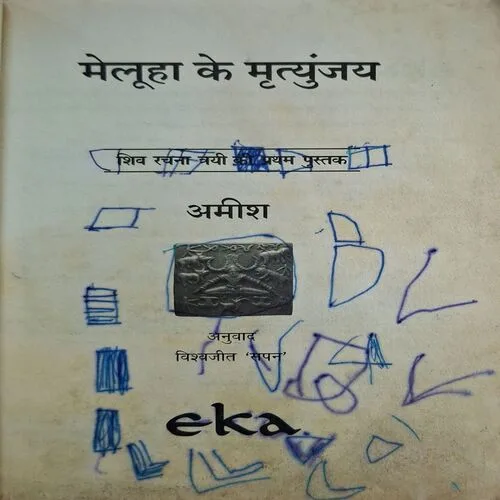 मेलूहा के मृत्युंजय
शिव रचना त्रयी की प्रथम पुस्तक
अमीश
अनुवाद
विश्वजीत ‘सपन’
eka